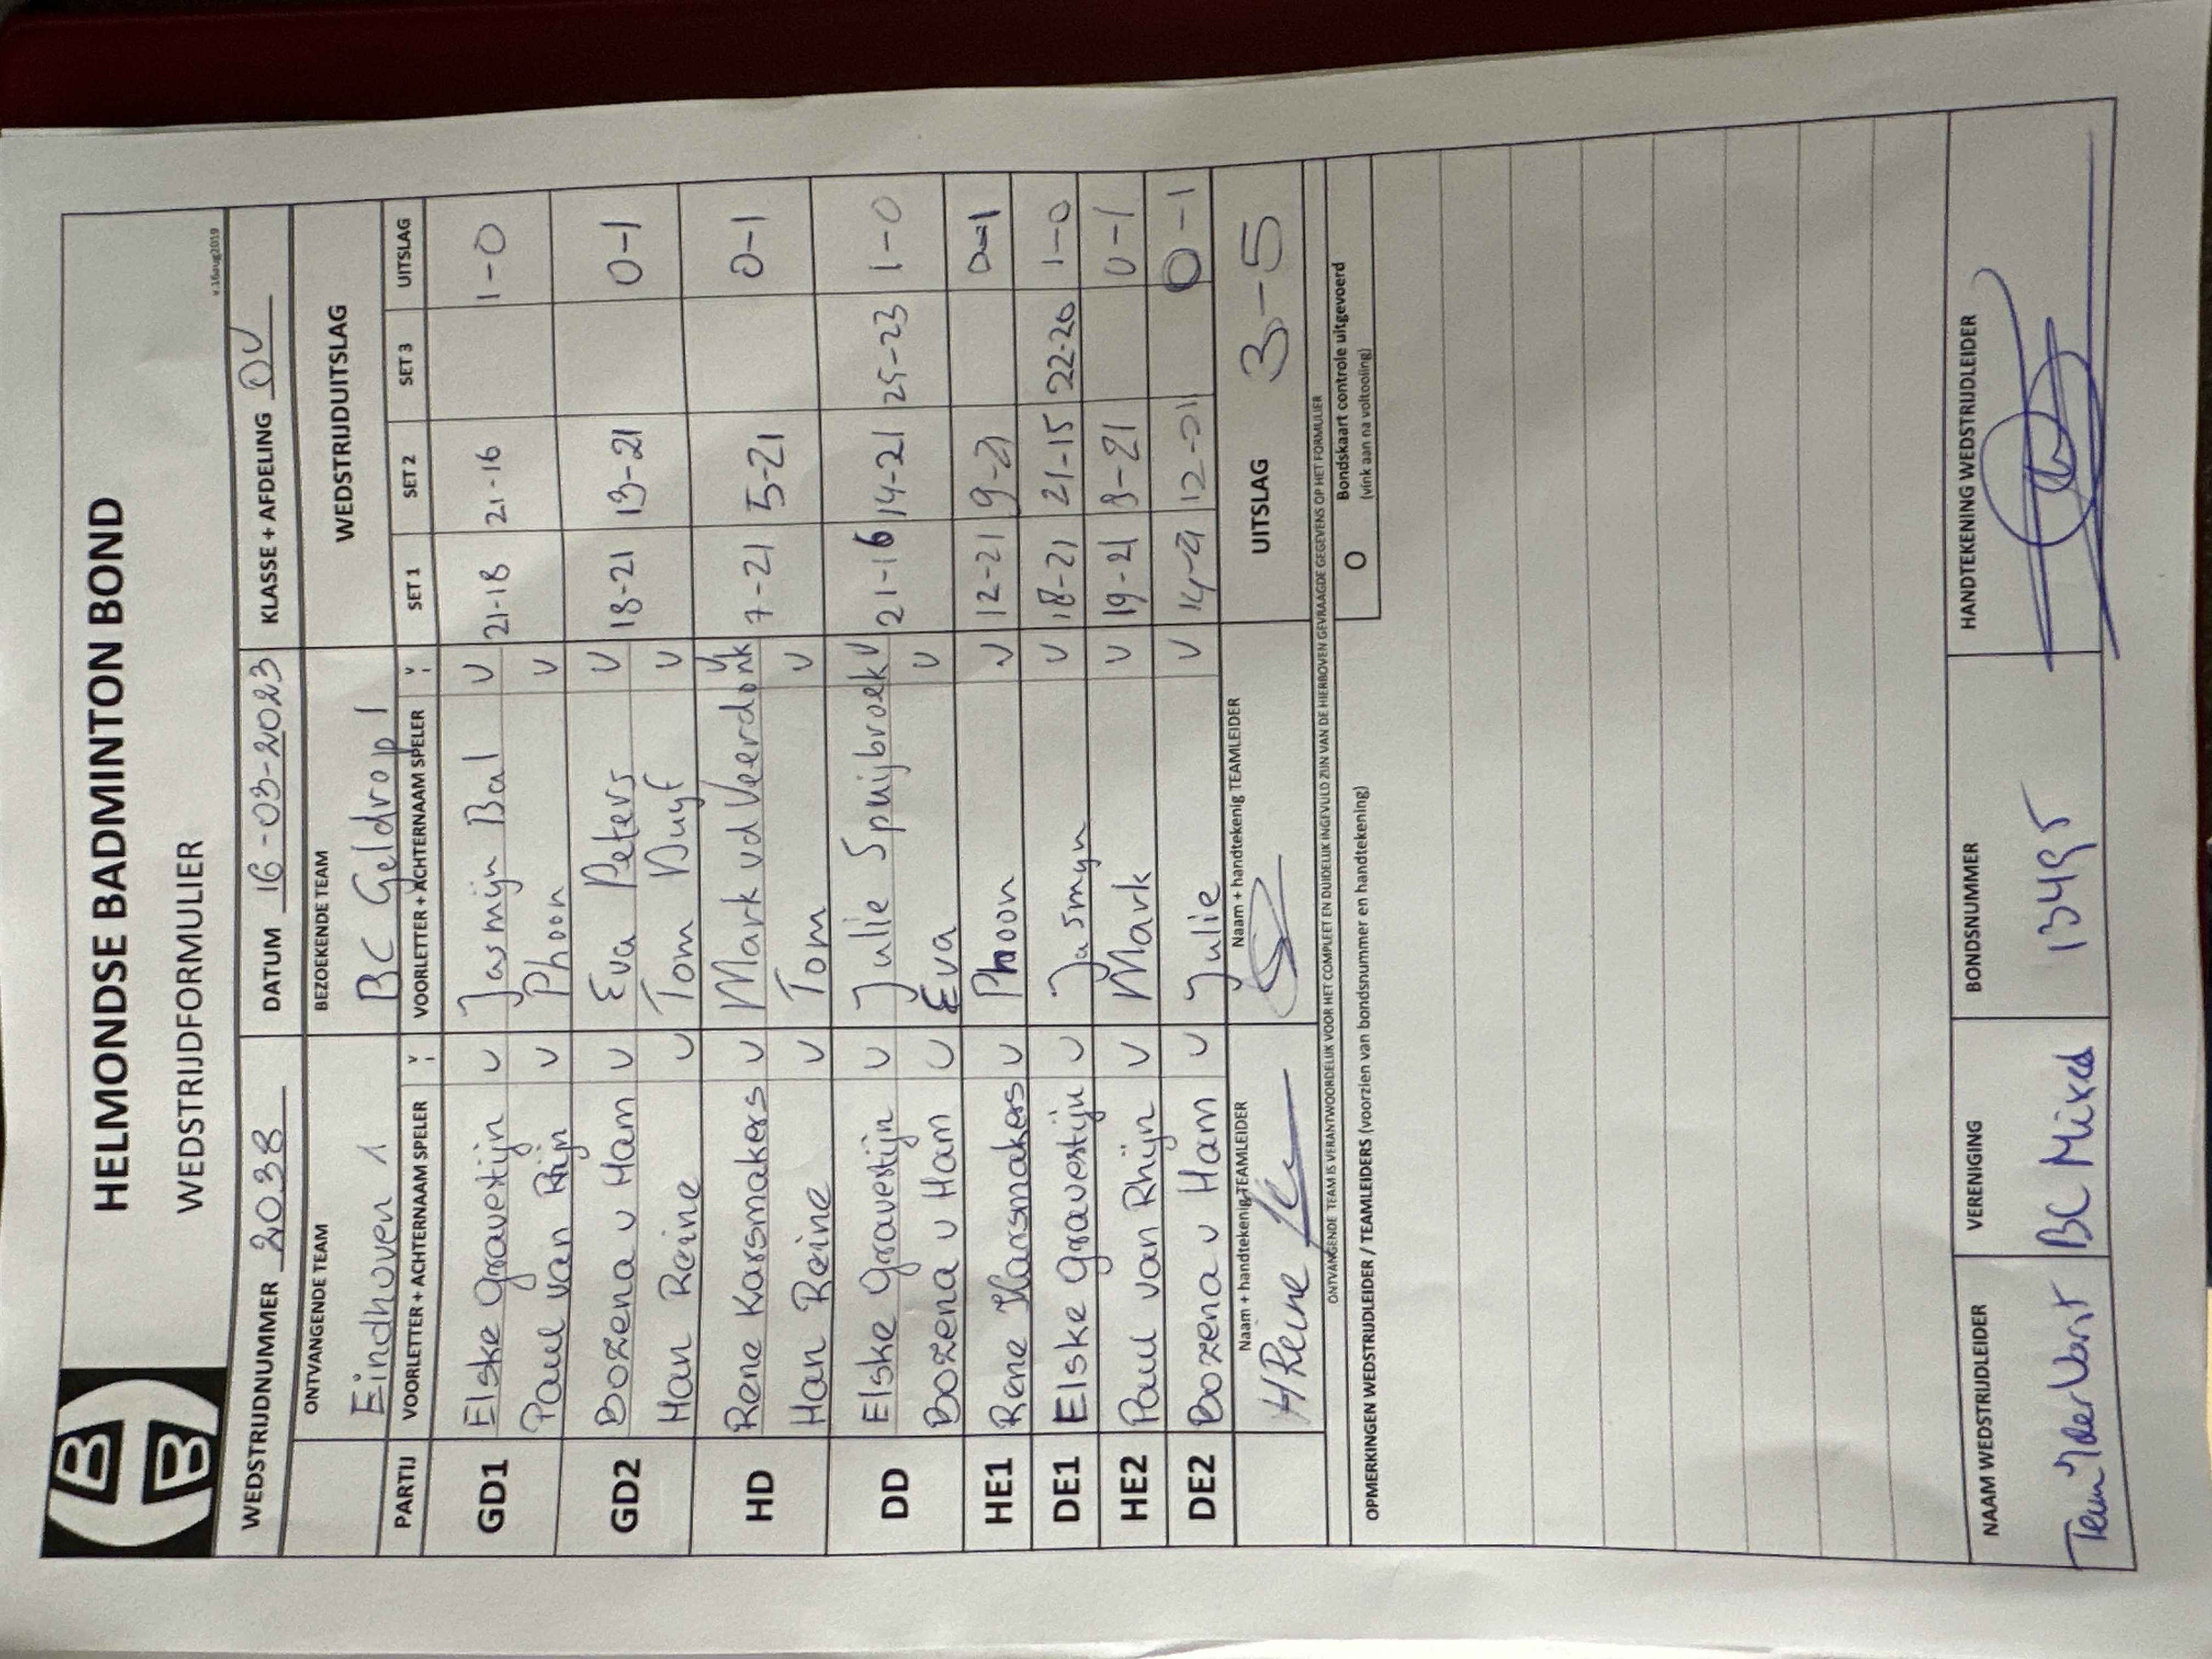 HELMONDSE BADMINTON BOND
WEDSTRIJDFORMULIER
v.16aug2019
WEDSTRIJDNUMMER 2038 DATUM 16-03-2023 KLASSE + AFDELING OV
ONTVANGENDE TEAM BEZOEKENDE TEAM WEDSTRIJDUITSLAG
Eindhoven 1 BC Geldrop 1
PARTIJ VOORLETTER + ACHTERNAAM SPELER V VOORLETTER + ACHTERNAAM SPELER V SET 1 SET 2 SET 3 UITSLAG
GD1 Elske Gravestijn V Jasmijn Bal V 21-18 21-16 1-0
Paul van Rijn V Phoon V
GD2 Bozena v Ham V Eva Peters V 18-21 13-21 0-1
Han Reine V Tom Duyf V
HD Rene Karsmakers V Mark vd Veerdonk V 7-21 5-21 0-1
Han Reine V Tom V
DD Elske Gravestijn V Julie Spuijbroek V 21-16 14-21 25-23 1-0
Bozena v Ham V Eva V
HE1 Rene Karsmakers V Phoon V 12-21 9-21 0-1
DE1 Elske Gravestijn V Jasmyn V 18-21 21-15 22-20 1-0
HE2 Paul van Rhijn V Mark V 19-21 8-21 0-1
DE2 Bozena v Ham V Julie V 14-21 12-21 0-1
Naam + handtekenig TEAMLEIDER Naam + handtekenig TEAMLEIDER UITSLAG 3-5
H Reine
ONTVANGENDE TEAM IS VERANTWOORDELIJK VOOR HET COMPLEET EN DUIDELIJK INGEVULD ZIJN VAN DE HIERBOVEN GEVRAAGDE GEGEVENS OP HET FORMULIER
OPMERKINGEN WEDSTRIJDLEIDER / TEAMLEIDERS (voorzien van bondsnummer en handtekening) O Bondskaart controle uitgevoerd
(vink aan na voltooiing)
NAAM WEDSTRIJDLEIDER VERENIGING BONDSNUMMER HANDTEKENING WEDSTRIJDLEIDER
BC Mixed 13495